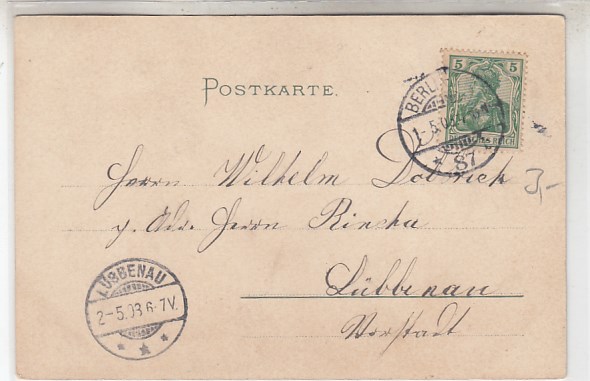 POSTKARTE.
5 5
REICH
BERLIN
87
Herrn Wilhelm Dobrick
p. Adr. Herrn Rinska
Lübbenau
Vorstadt
3,-
LÜBBENAU
2-5.03.6-7V.